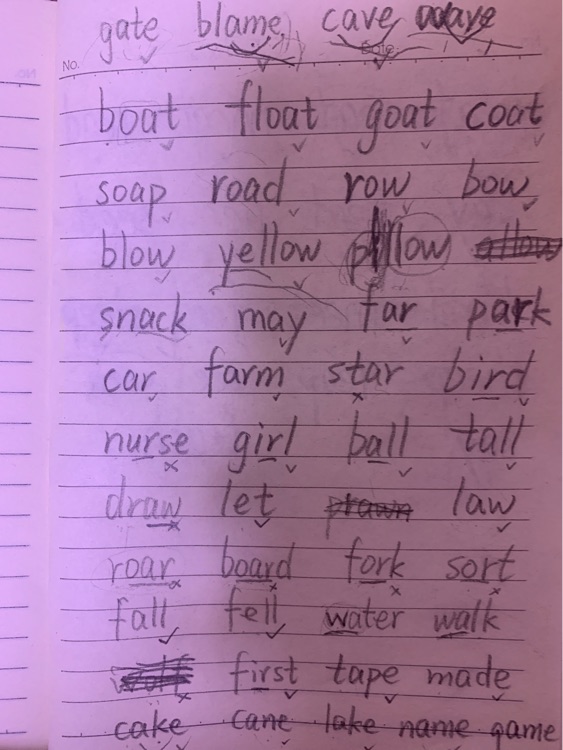 gate blame cave wave
No.
boat float goat coat
soap road row bow
blow yellow pillow
snack may far park
car farm star bird
nurse girl ball tall
draw let prawn law
roar board fork sort
fall fell water walk
first tape made
cake cane lake name game